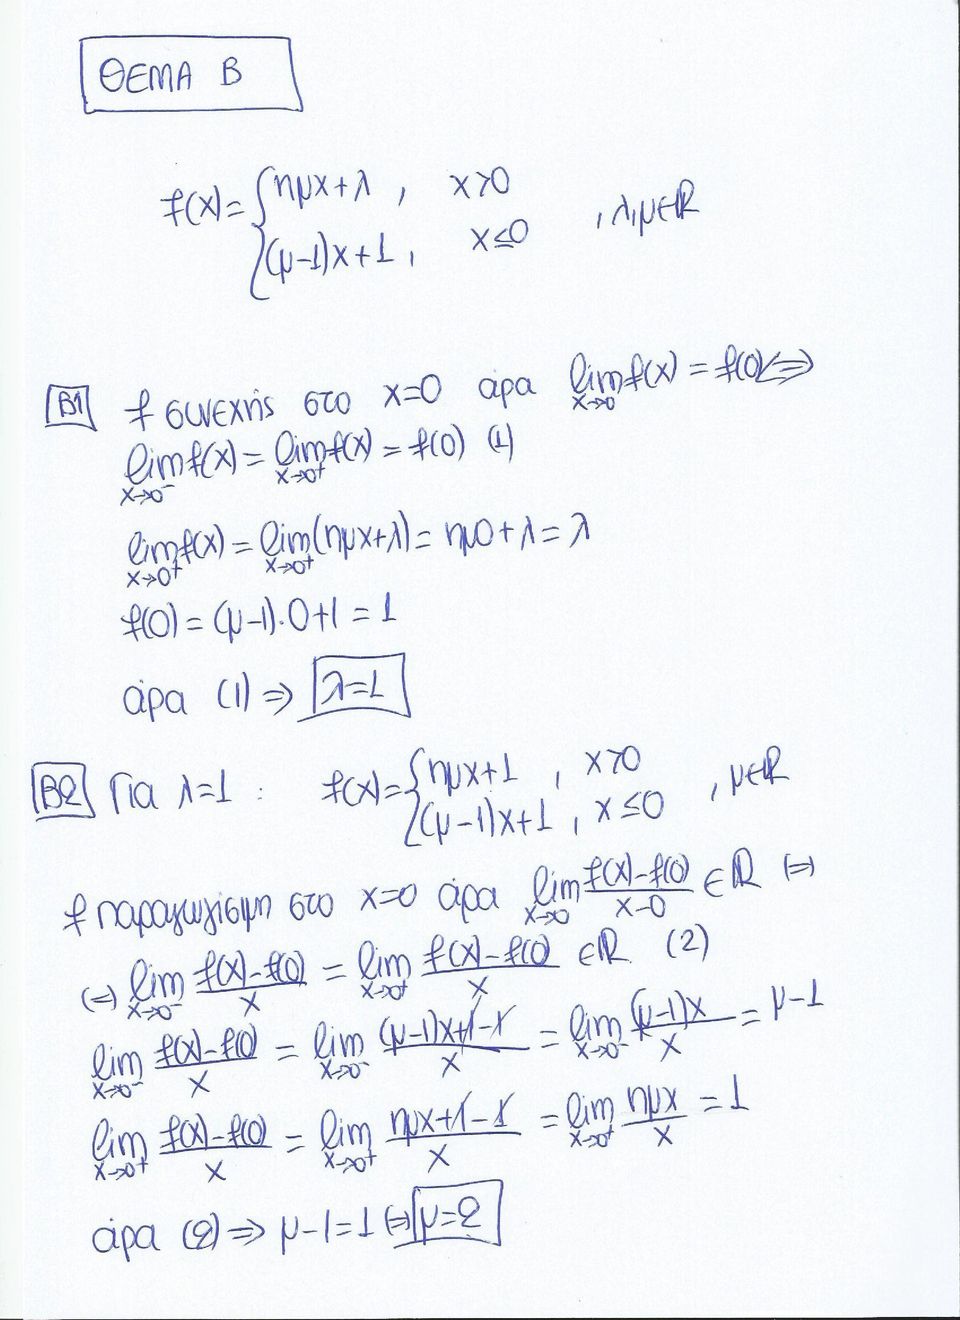 ΘΕΜΑ Β
f(x)= { ημx+λ , x>0
(μ-1)x+1 , x≤0 , λ,μ∈ℝ
B1 f συνεχής στο x=0 άρα lim x→0 f(x) = f(0) ⇔
lim x→0⁻ f(x) = lim x→0⁺ f(x) = f(0) (1)
lim x→0⁺ f(x) = lim x→0⁺ (ημx+λ) = ημ0+λ = λ
f(0) = (μ-1)·0+1 = 1
άρα (1) ⇒ λ=1
B2 Για λ=1 : f(x)= { ημx+1 , x>0
(μ-1)x+1 , x≤0 , μ∈ℝ
f παραγωγίσιμη στο x=0 άρα lim x→0 (f(x)-f(0))/(x-0) ∈ℝ ⇔
⇔ lim x→0⁻ (f(x)-f(0))/x = lim x→0⁺ (f(x)-f(0))/x ∈ℝ (2)
lim x→0⁻ (f(x)-f(0))/x = lim x→0⁻ ((μ-1)x+1-1)/x = lim x→0⁻ ((μ-1)x)/x = μ-1
lim x→0⁺ (f(x)-f(0))/x = lim x→0⁺ (ημx+1-1)/x = lim x→0⁺ ημx/x = 1
άρα (2) ⇒ μ-1=1 ⇔ μ=2